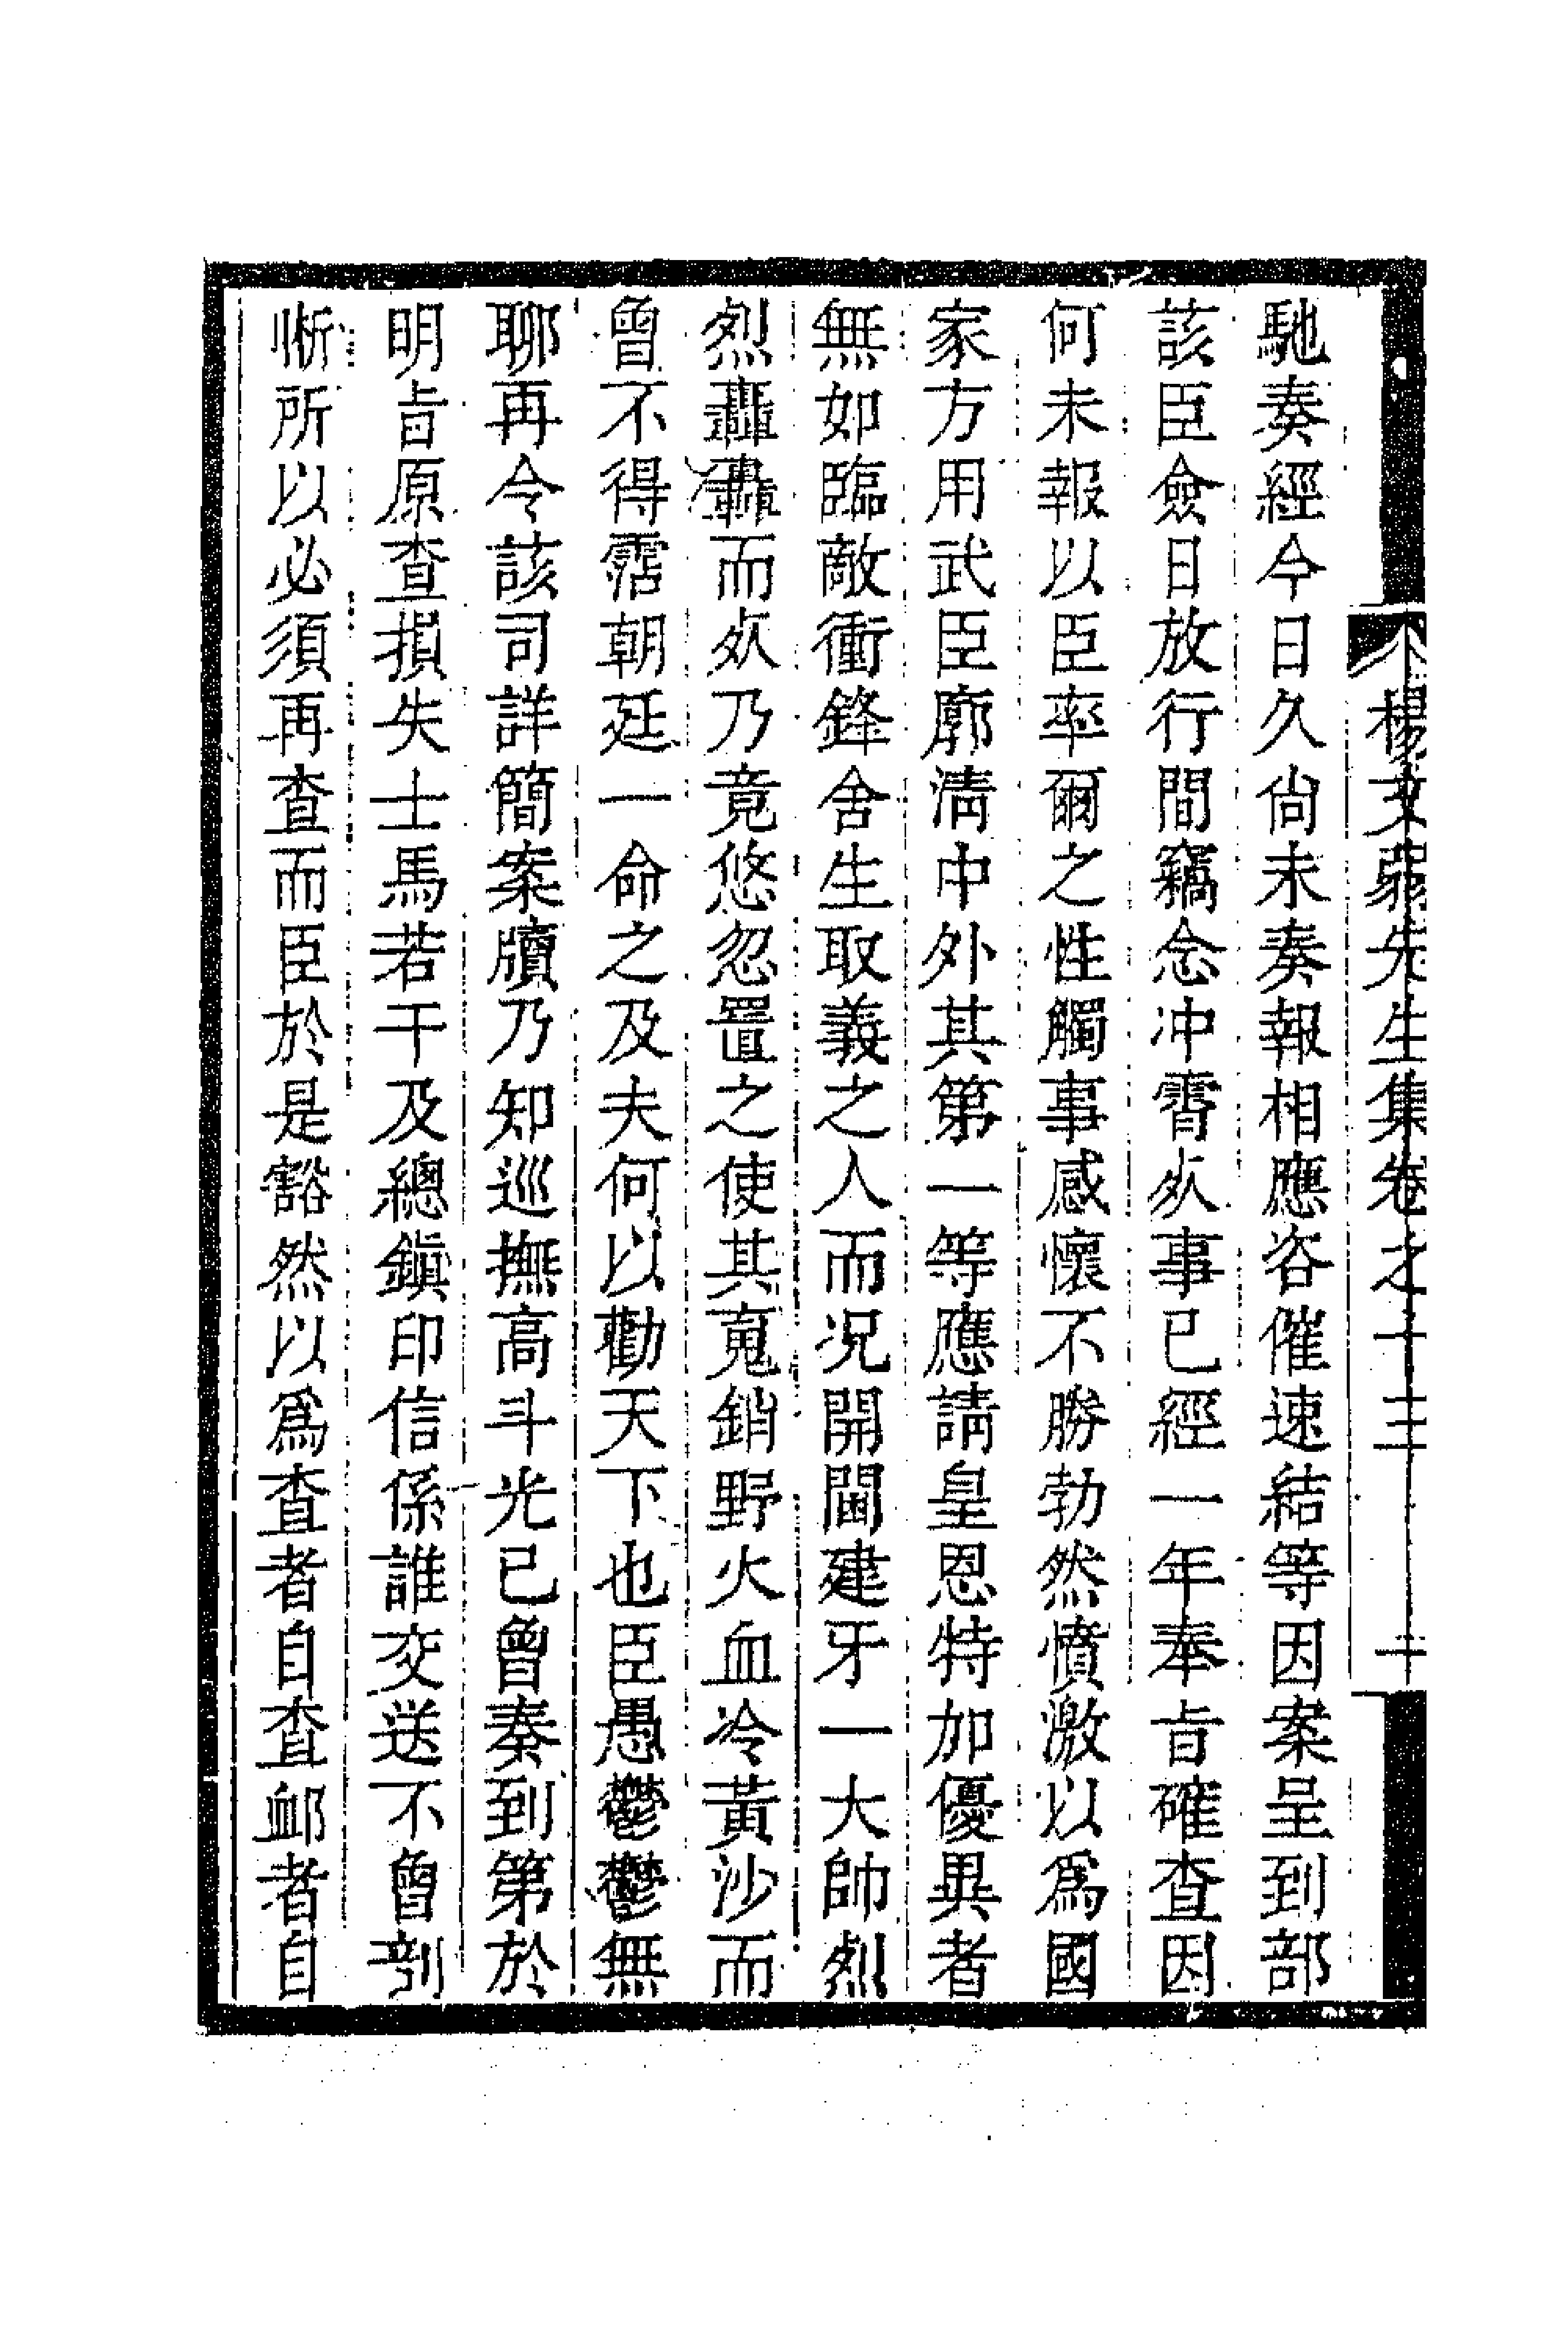 楊文弱先生集卷之十三
馳奏經今日久尙未奏報相應咨催速結等因案呈到部
該臣僉日放行間竊念冲霄死事已經一年奉旨確查因
何未報以臣率爾之性觸事感懷不勝勃然憤激以爲國
家方用武臣廓淸中外其第一等應請皇恩特加優異者
無如臨敵衝鋒舍生取義之人而况開閫建牙一大帥烈
烈轟轟而死乃竟悠忽置之使其䰟銷野火血冷黃沙而
曾不得霑朝廷一命之及夫何以勸天下也臣愚鬱鬱無
聊再令該司詳簡案牘乃知巡撫高斗光已曾奏到第於
明旨原查損失士馬若干及總鎭印信係誰交送不曾剖
晰所以必須再查而臣於是豁然以爲查者自查䘏者自